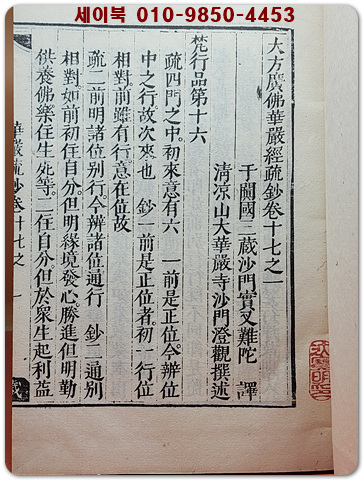 세이북 010-9850-4453
大方廣佛華嚴經疏鈔卷十七之一
于闐國三藏沙門實叉難陀 譯
清涼山大華嚴寺沙門澄觀撰述
梵行品第十六
疏四門之中初來意有六 一前是正位今辨位
中之行故次來也 鈔一前是正位者初一行位
相對前雖有行意在位故
疏二前明諸位別行今辨諸位通行 鈔二通別
相對如前初住自分但明緣境發心勝進但明勤
供養佛樂住生死等二住自分但於眾生起利益
華嚴疏鈔卷十七之一